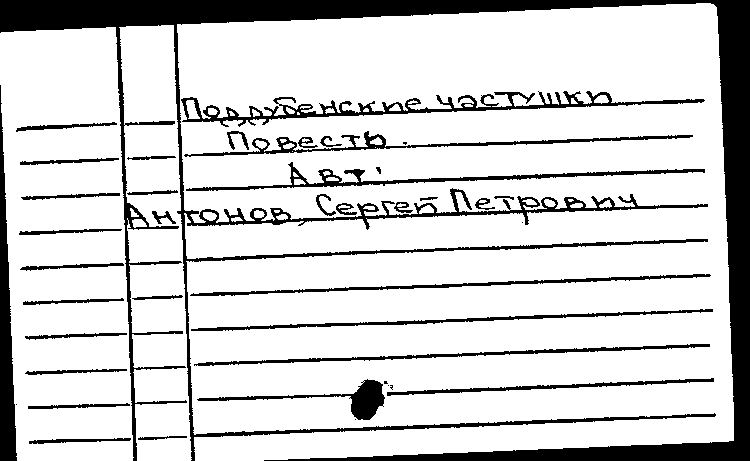 Поддубенские частушки
Повесть.
Авт:
Антонов, Сергей Петрович